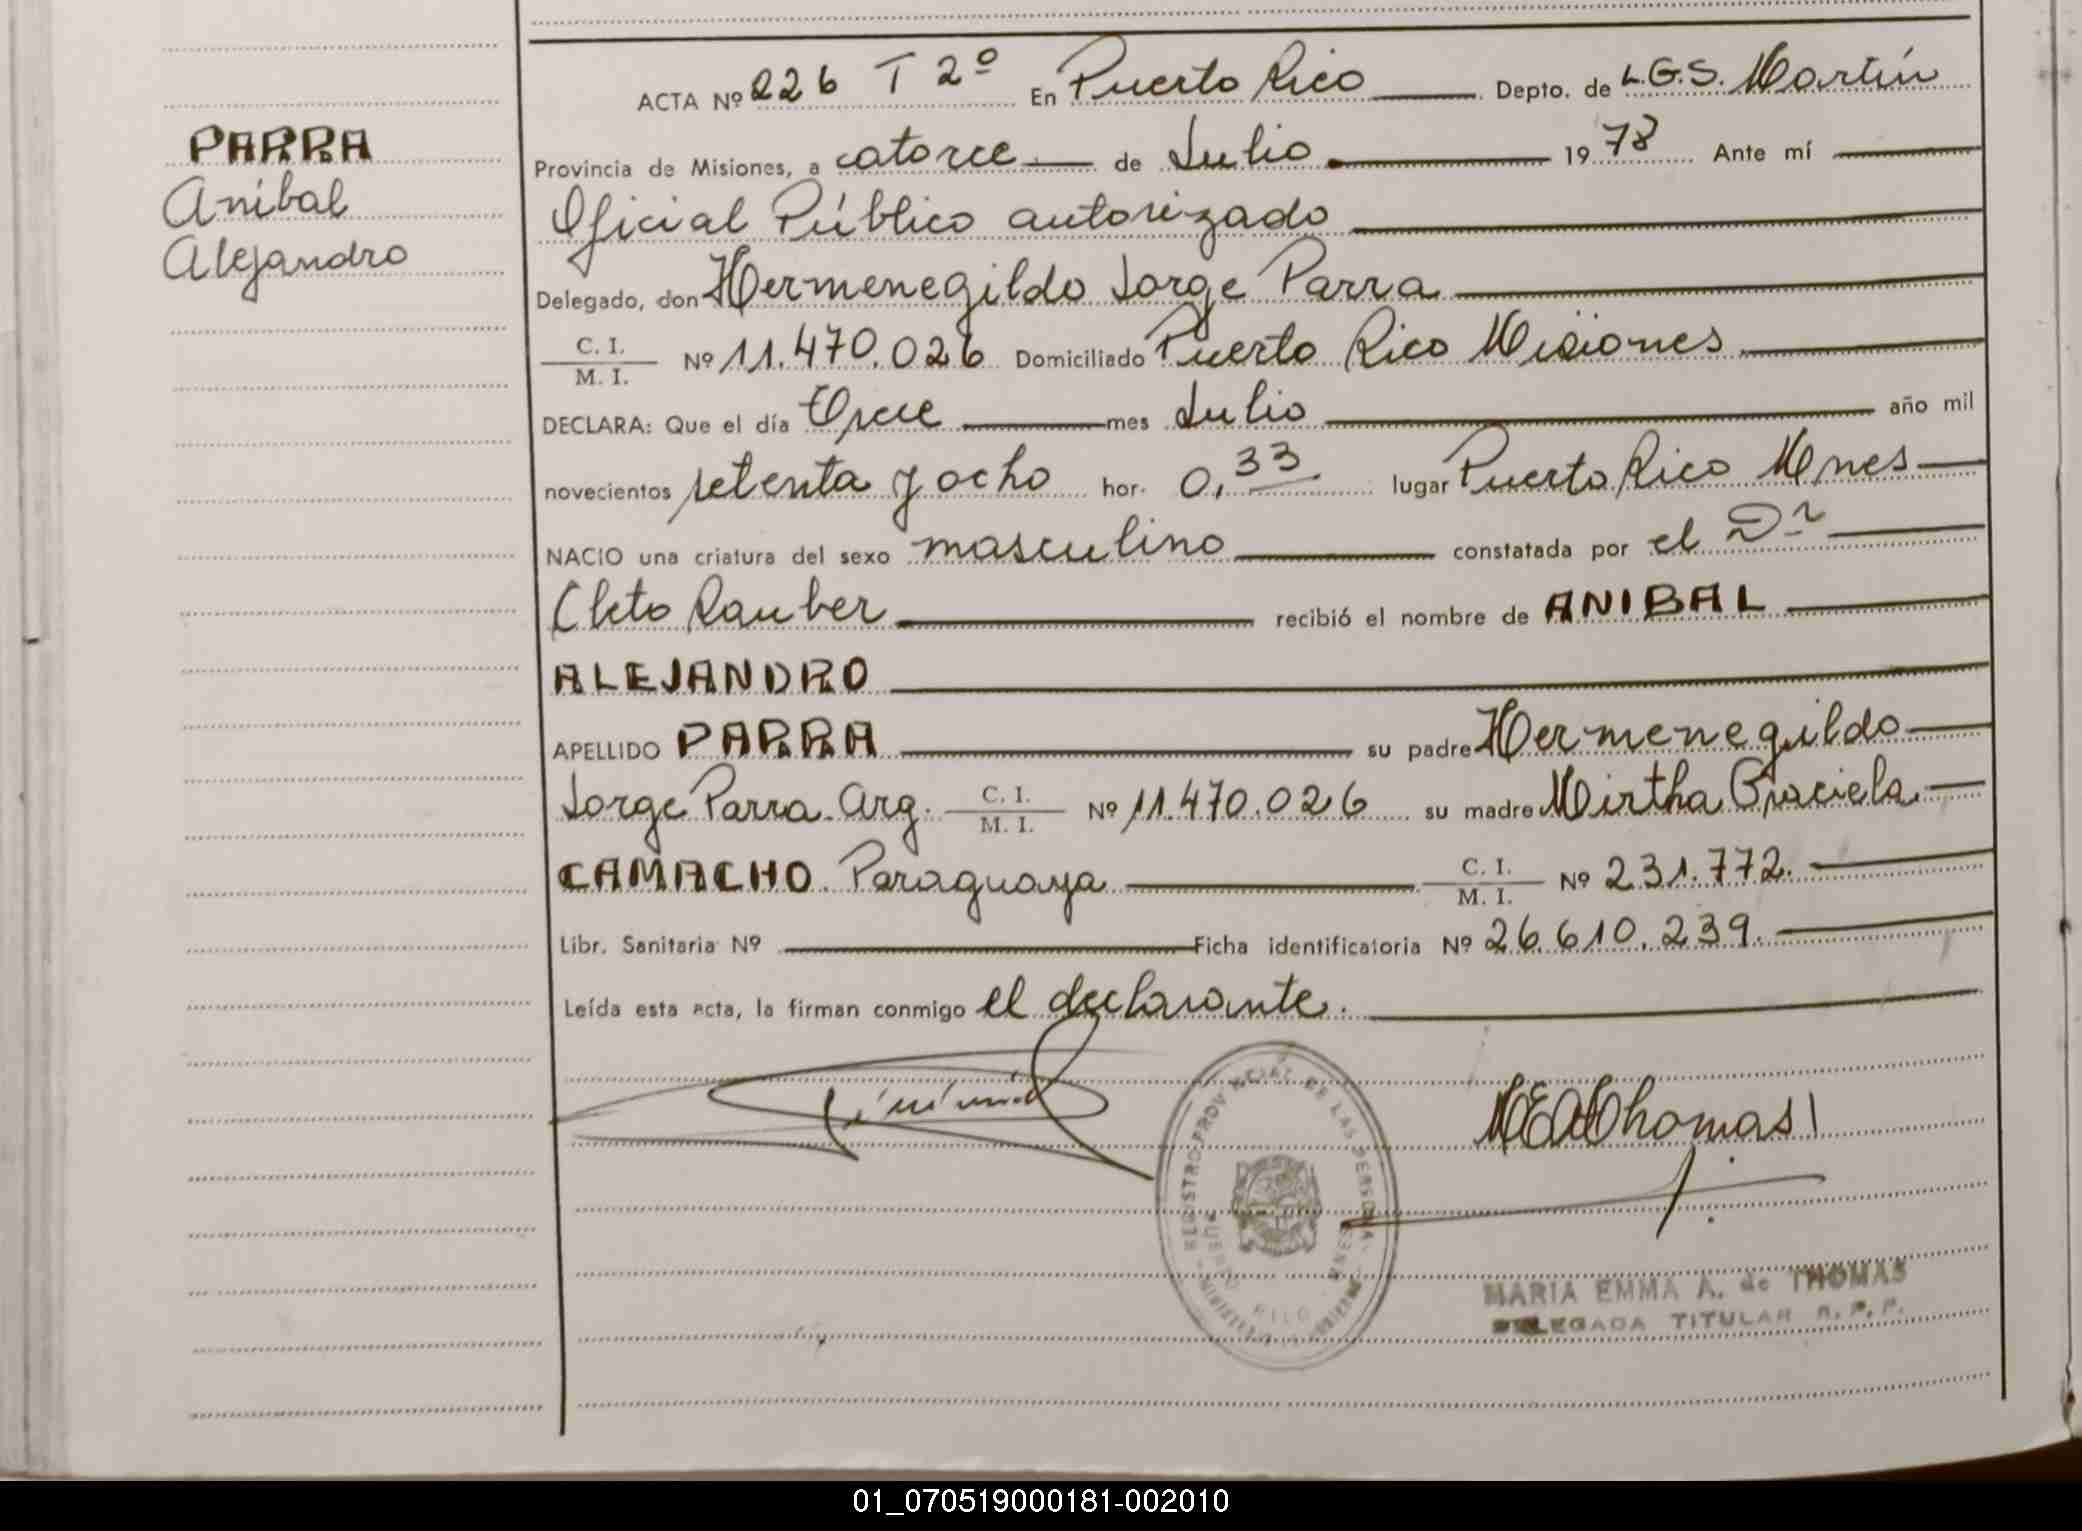 ACTA Nº 226 T 2º En Puerto Rico Depto. de L.G.S. Martín
PARRA
Aníbal
Alejandro
Provincia de Misiones, a catorce de Julio 1978 Ante mí
Oficial Público autorizado
Delegado, don Hermenegildo Jorge Parra
C. I. / M. I. Nº 11.470.026 Domiciliado Puerto Rico Misiones
DECLARA: Que el día Once mes Julio año mil
novecientos setenta y ocho hor. 0,33 lugar Puerto Rico Mnes
NACIO una criatura del sexo masculino constatada por el Dr
Cleto Rauber recibió el nombre de ANIBAL
ALEJANDRO
APELLIDO PARRA su padre Hermenegildo
Jorge Parra Arg. C. I. / M. I. Nº 11.470.026 su madre Mirtha Graciela
CAMACHO Paraguaya C. I. / M. I. Nº 231.772.
Libr. Sanitaria Nº Ficha identificatoria Nº 26.610.239.
Leída esta acta, la firman conmigo el declarante.
MEAThomas
REGISTRO PROVINCIAL DE LAS PERSONAS
PUERTO RICO MNES
MARIA EMMA A. de THOMAS
DELEGADA TITULAR R. P. P.
01_070519000181-002010